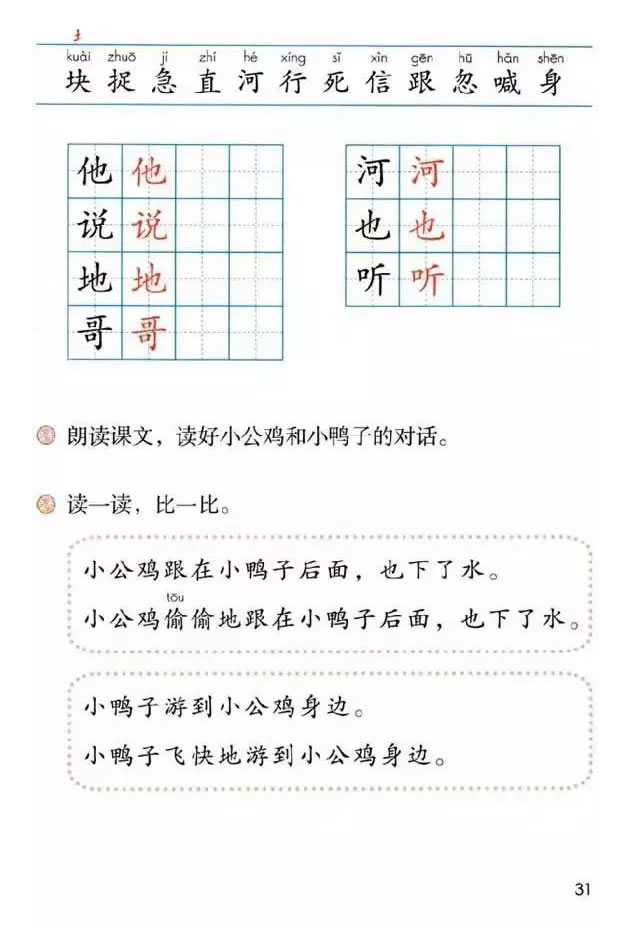 𰀁
kuài zhuō jí zhí hé xíng sǐ xìn gēn hū hǎn shēn
块 捉 急 直 河 行 死 信 跟 忽 喊 身
他 他
说 说
地 地
哥 哥
河 河
也 也
听 听
朗读课文，读好小公鸡和小鸭子的对话。
读一读，比一比。
小公鸡跟在小鸭子后面，也下了水。
tōu
小公鸡偷偷地跟在小鸭子后面，也下了水。
小鸭子游到小公鸡身边。
小鸭子飞快地游到小公鸡身边。
31